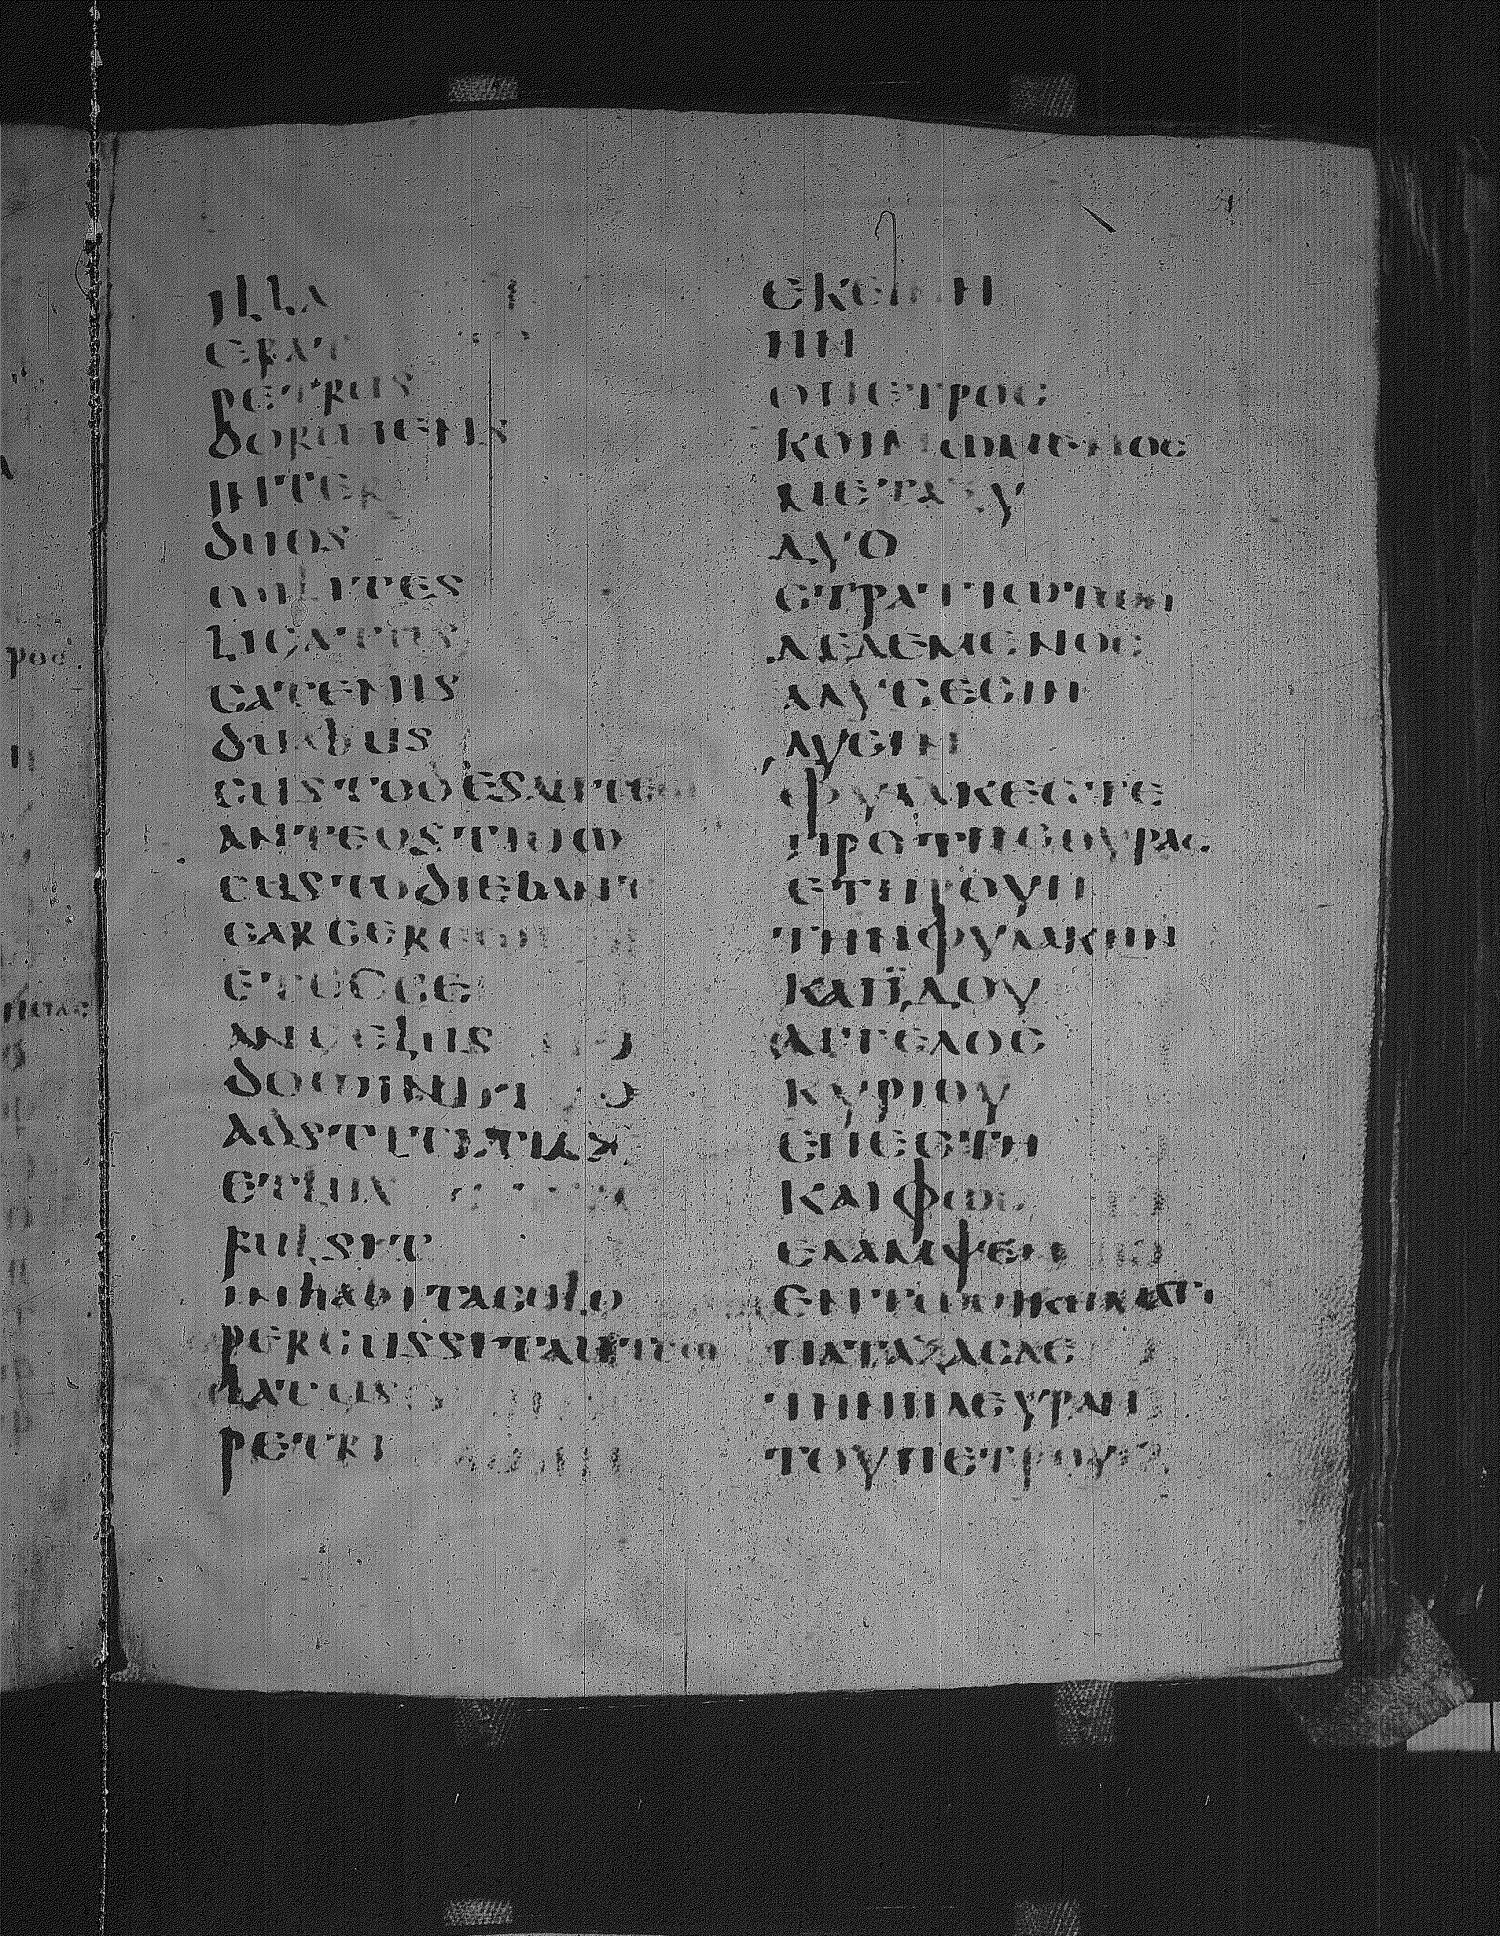 ILLA
ERAT
PETRUS
DORMIENS
INTER
DUOS
MILITES
LIGATUS
CATENIS
DUABUS
CUSTODESAUTEM
ANTEOSTIUM
CUSTODIEBANT
CARCEREM
ETECCE
ANGELUS
DOMINI
ETLUX
FULSIT
INHABITACULO
PERCUSSITAUTEM
LATUS
PETRI
ΕΚΕΙΝΗ
ΗΝ
ΟΠΕΤΡΟϹ
ΚΟΙΜΩΜΕΝΟϹ
ΜΕΤΑΞΥ
ΔΥΟ
ϹΤΡΑΤΙΩΤΩΝ
ΔΕΔΕΜΕΝΟϹ
ΑΛΥϹΕϹΙΝ
ΔΥϹΙΝ
ΦΥΛΑΚΕϹΤΕ
ΠΡΟΤΗϹΘΥΡΑϹ
ΕΤΗΡΟΥΝ
ΤΗΝΦΥΛΑΚΗΝ
ΚΑΙΪΔΟΥ
ΑΓΓΕΛΟϹ
ΚΥΡΙΟΥ
ΕΠΕϹΤΗ
ΚΑΙΦΩϹ
ΕΛΑΜΨΕΝ
ΕΝΤΩΟΙΚΗΜΑΤΙ
ΠΑΤΑΞΑϹΔΕ
ΤΗΝΠΛΕΥΡΑΝ
ΤΟΥΠΕΤΡΟΥ